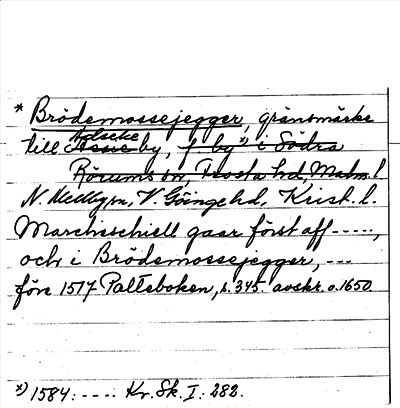 * Brödemossejegger, gränsmärke
Adseke
till Assie by, f by *) i Södra
Rörums sn, Frosta hd, Malm. l
N. Mellby sn, V. Göinge hd, Krist. l.
Marchsschiell gaar först aff -----,
och i Brödemossejegger, ---
före 1517 Palteboken, s. 345 avskr. o. 1650
*) 1584: ---- Kr. Sk. I: 282.